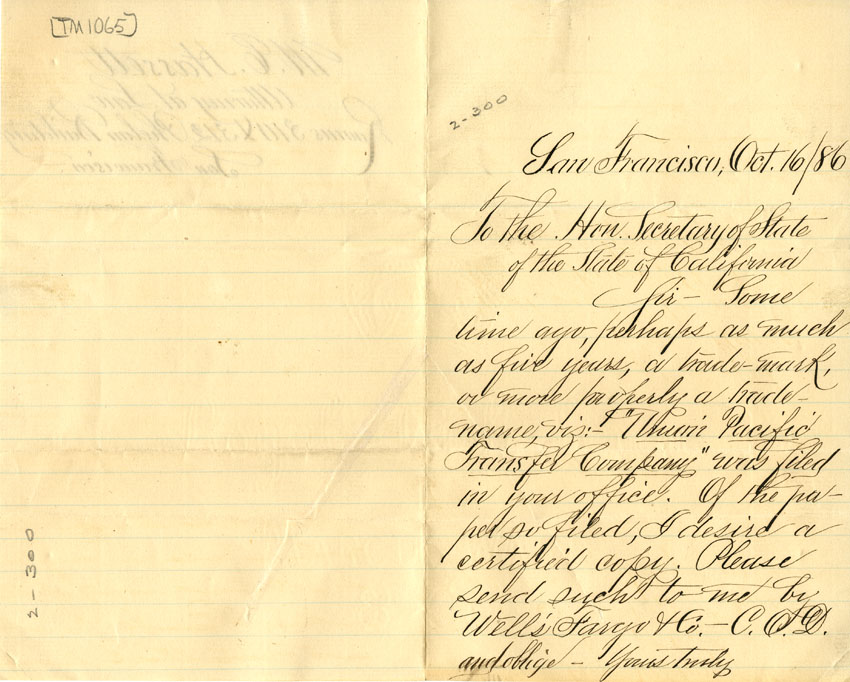 [TM1065]
2-300
2-300
San Francisco, Oct. 16/86
To the Hon. Secretary of State
of the State of California
Sir - Some
time ago, perhaps as much
as five years, a trade-mark,
or more properly a trade-
name, viz:- "Union Pacific
Transfer Company" was filed
in your office. Of the pa-
per so filed, I desire a
certified copy. Please
send such to me by
Wells Fargo & Co. - C.O.D.
and oblige - Yours truly